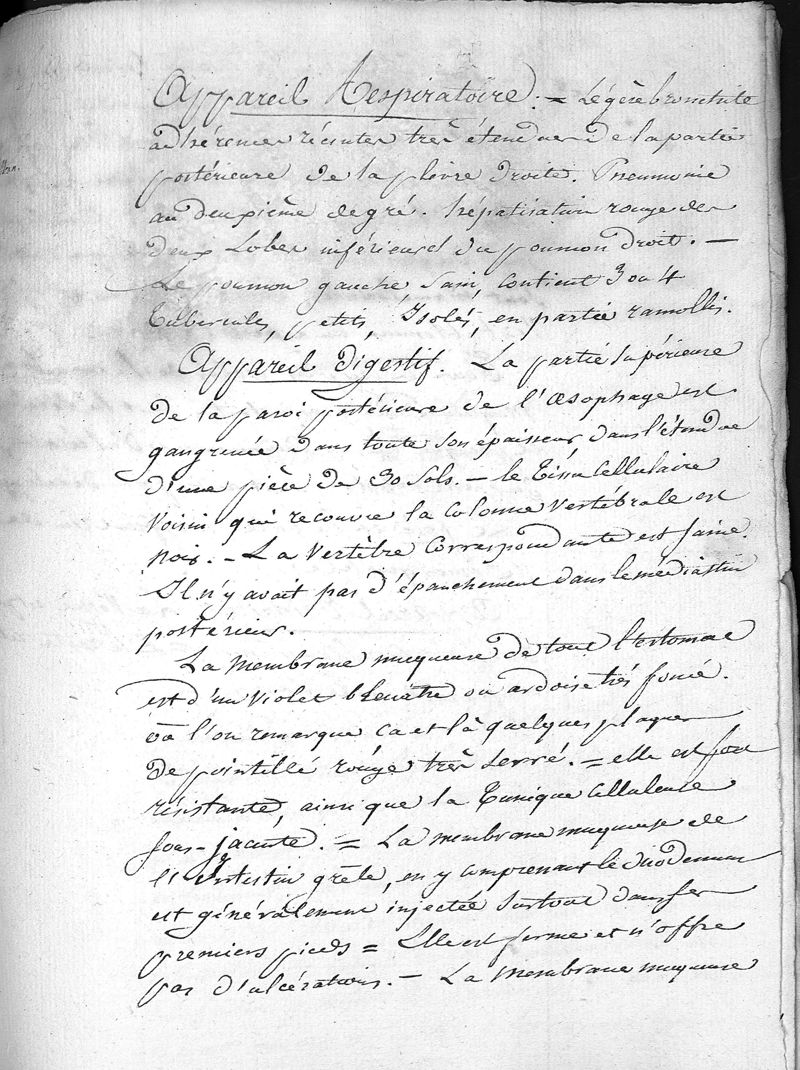 Appareil Respiratoire. = Légère bronchite
adhérences récentes très étendues de la partie
postérieure de la plèvre droite. Pneumonie
au deuxième degré. hépatisation rouge des
deux Lobes inférieurs du poumon droit. —
Le poumon gauche sain, contient 3 ou 4
Tubercules, petits, Isolés, en partie ramollis.
Appareil digestif. La partie supérieure
de la paroi postérieure de l'œsophage est
gangrenée dans toute son épaisseur, dans l'étendue
d'une pièce de 30 sols. — le Tissu Cellulaire
Voisin qui recouvre la colonne Vertébrale est
noir. — La Vertèbre correspondante est saine.
Il n'y avait pas d'épanchement dans le médiastin
postérieur.
La membrane muqueuse de tout l'estomac
est d'un Violet bleuâtre ou ardoisé très foncé.
où l'on remarque ca et là quelques plaques
de pointillé rouge très serré. = elle est fort
résistante, ainsi que la Tunique Celluleuse
sous-jacente. = La membrane muqueuse de
l'Intestin grêle, en y comprenant le duodenum
est généralement injectée surtout dans ses
premiers pieds = Elle est ferme et n'offre
pas d'ulcérations. — La membrane muqueuse